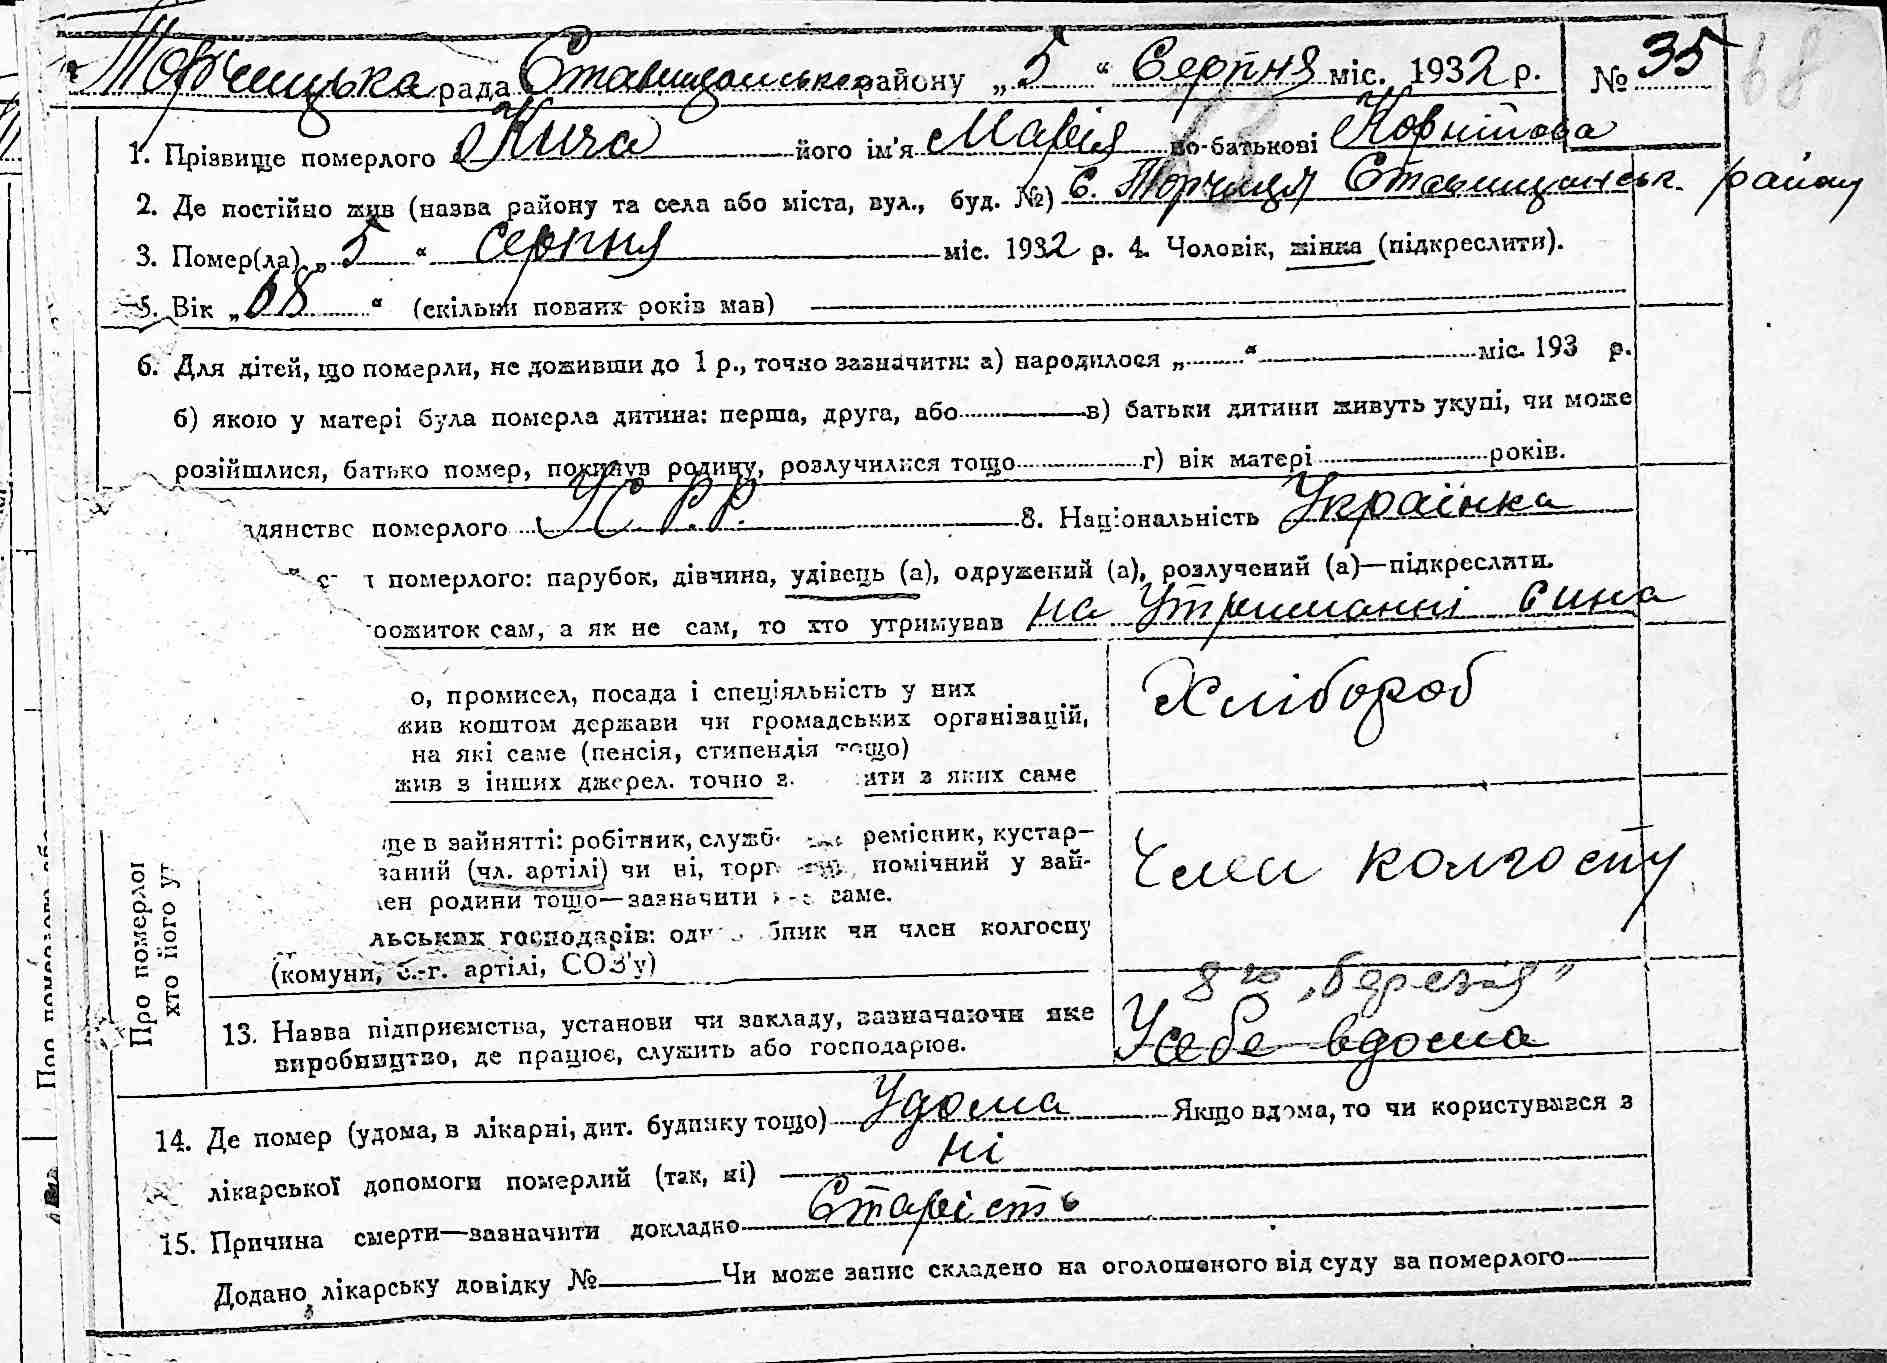 Торчицька рада Ставищанського району „5“ Серпня міс. 1932 р. № 35 68
1. Прізвище померлого Кича його ім'я Марія по-батькові Корніїова
2. Де постійно жив (назва району та села або міста, вул., буд. №) С. Торчиця Ставищанськ. району
3. Помер(ла) „5“ серпня міс. 1932 р. 4. Чоловік, жінка (підкреслити).
5. Вік „68“ (скільки повних років мав)
6. Для дітей, що померли, не доживши до 1 р., точно зазначити: а) народилося „ “ міс. 193 р.
б) якою у матері була померла дитина: перша, друга, або в) батьки дитини живуть укупі, чи може
розійшлися, батько помер, покинув родину, розлучилися тощо г) вік матері років.
дянство померлого УСРР. 8. Національність Українка
померлого: парубок, дівчина, удівець (а), одружений (а), розлучений (а)—підкреслити.
рожиток сам, а як не сам, то хто утримував на утриманні сина
о, промисел, посада і спеціяльність у них Хлібороб
жив коштом держави чи громадських організацій,
на які саме (пенсія, стипендія тощо)
жив з інших джерел, точно з ити з яких саме
ще в зайнятті: робітник, службо ремісник, кустар—
заний (чл. артілі) чи ні, торг помічний у зай-
ен родини тощо—зазначити саме. Член колгоспу
льських господарів: одн бник чи член колгоспу
(комуни, с.-г. артілі, СОЗ'у)
8го „березня”
13. Назва підприємства, установи чи закладу, зазначаючи яке Усебе вдома
виробництво, де працює, служить або господарює.
Про померлог
хто його ут
14. Де помер (удома, в лікарні, дит. будинку тощо) Удома Якщо вдома, то чи користувався з
лікарської допомоги померлий (так, ні) ні
15. Причина смерти—зазначити докладно Старість
Додано лікарську довідку № Чи може запис складено на оголошеного від суду за померлого